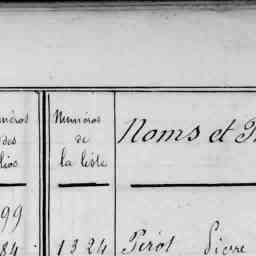 Numéros
des
lios
Numéros
de
la liste
Noms et
99
84 .
1324 Pérot Pierre